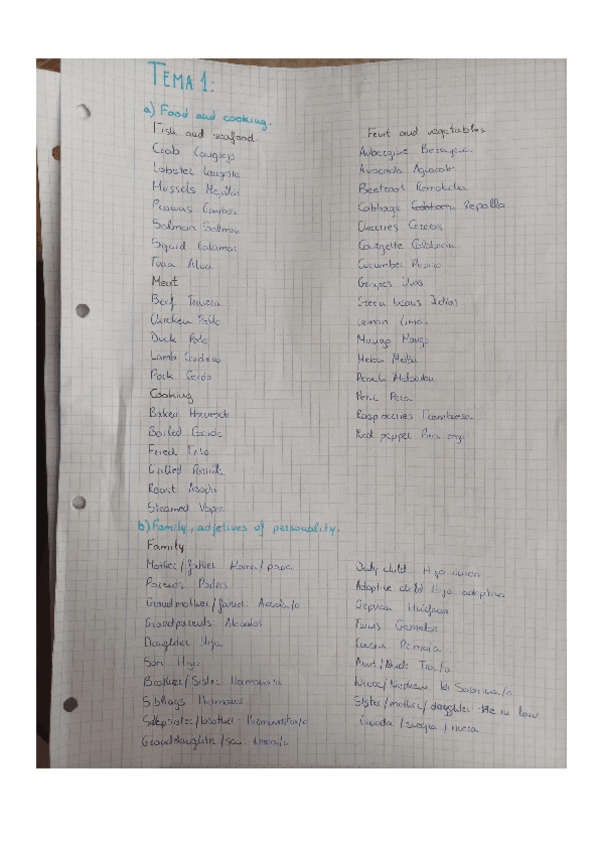 TEMA 1:
a) Food and cooking.
Fish and seafood
Crab Cangrejo
Lobster Langosta
Mussels Mejillon
Prawns Gambas
Salmon Salmon
Squid Calamar
Tuna Atun
Meat
Beef Ternera
Chicken Pollo
Duck Pato
Lamb Cordero
Pork Cerdo
Cooking
Baked Horneado
Boiled Cocido
Fried Frito
Grilled
Roast Asado
Steamed Vapor
Fruit and vegetables
Aubergine Berenjena
Avocado Aguacate
Beetroot Remolacha
Cabbage Repollo
Cherries Cerezas
Courgette Calabacin
Cucumber Pepino
Grapes Uvas
Green beans Judias
Lemon Limon
Mango Mango
Melon Melon
Peach Melocoton
Pera
Raspberries Frambuesa
Red pepper
b) Family, adjetives of personality.
Family
Mother/father Mama/papa
Parents Padres
Grandmother/father: Abuela/o
Grandparents: Abuelos
Daughter Hija
Son Hijo
Brother/Sister Hermano/a
Siblings Hermanos
Stepsister/brother Hermanastra/o
Granddaughter/son: Nieta/o
Only child Hijo unico
Adoptive child Hijo adoptivo
Orphan Huerfano
Twins Gemelos
Cousin Primo/a
Aunt/Uncle Tia/o
Niece/Nephew Sobrina/o
Sister/mother/daughter in law
Cuñada/suegra/nuera